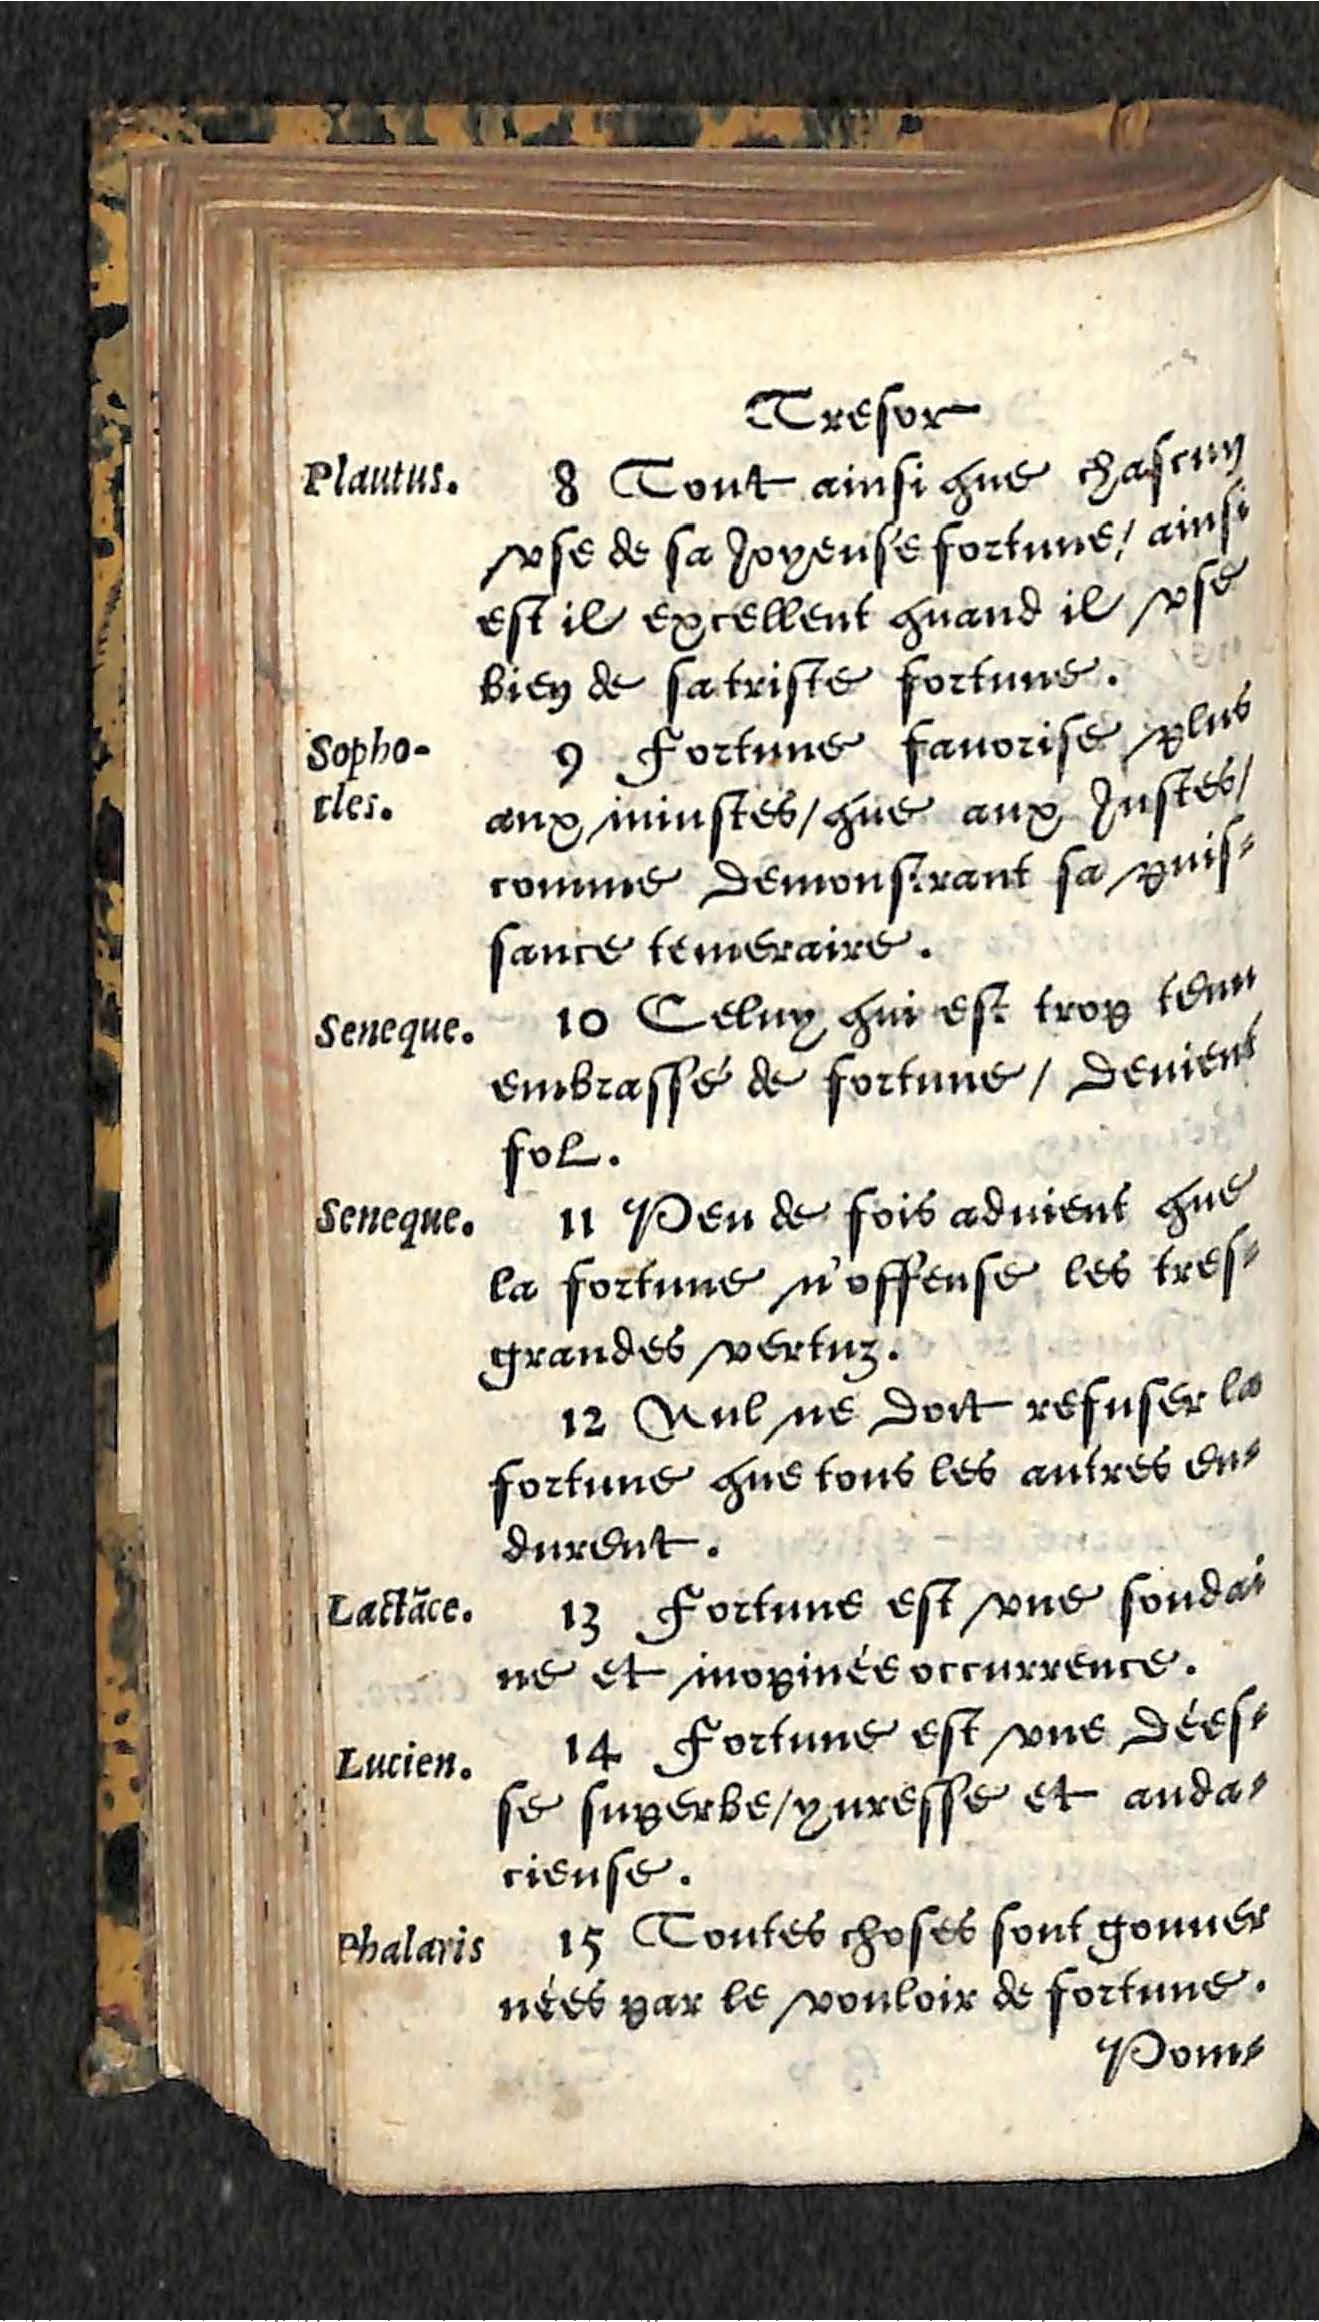 Tresor
Plautus. 8 Tout ainsi que chascun
vse de sa Joyeuse fortune/ ainsi
est il excellent quand il vse
bien de sa triste fortune.
Sopho- 9 Fortune fauorise plus
cles. aux iniustes/ que aux Justes/
comme demonstrant sa puis-
sance temeraire.
Seneque. 10 Celuy qui est trop tenu
embrassé de fortune/ deuient
fol.
Seneque. 11 Peu de fois aduient que
la fortune n'offense les tres-
grandes vertuz.
12 Nul ne doit refuser la
fortune que tous les autres en-
durent.
Lactāce. 13 Fortune est vne soudai
ne et inopinée occurrence.
Lucien. 14 Fortune est vne dées-
se superbe/ yuresse et auda-
cieuse.
Phalaris 15 Toutes choses sont gouuer
nées par le vouloir de fortune.
Pom-